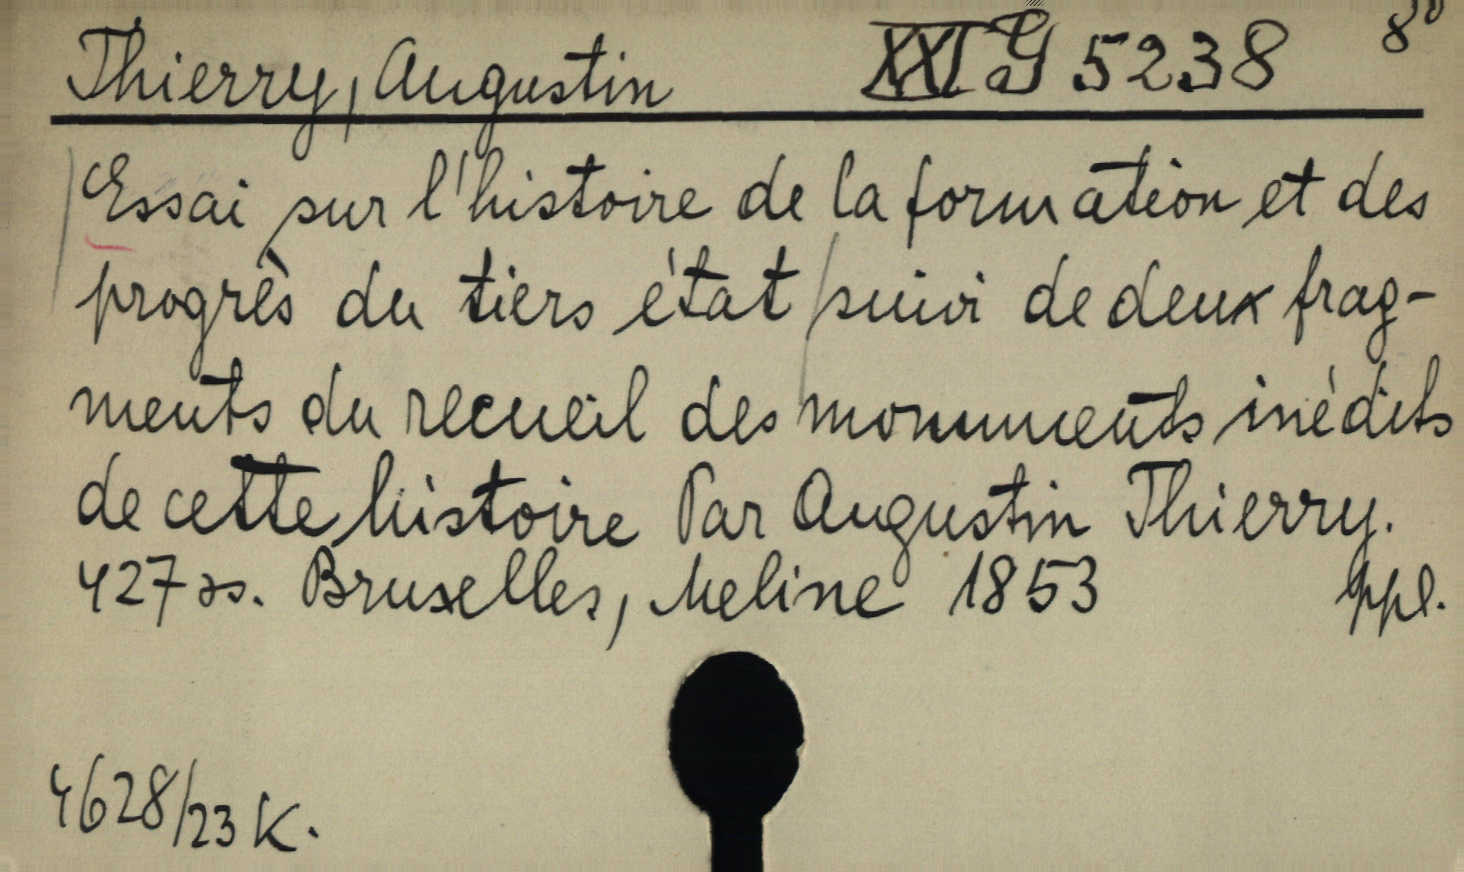 Thierry, Augustin XXI G 5238 8°
Essai sur l'histoire de la formation et des
progrès du tiers état suivi de deux frag-
ments du recueil des monuments inédits
de cette histoire Par Augustin Thierry.
427 ss. Bruxelles, Meline 1853 ppl.
4628/23 K.